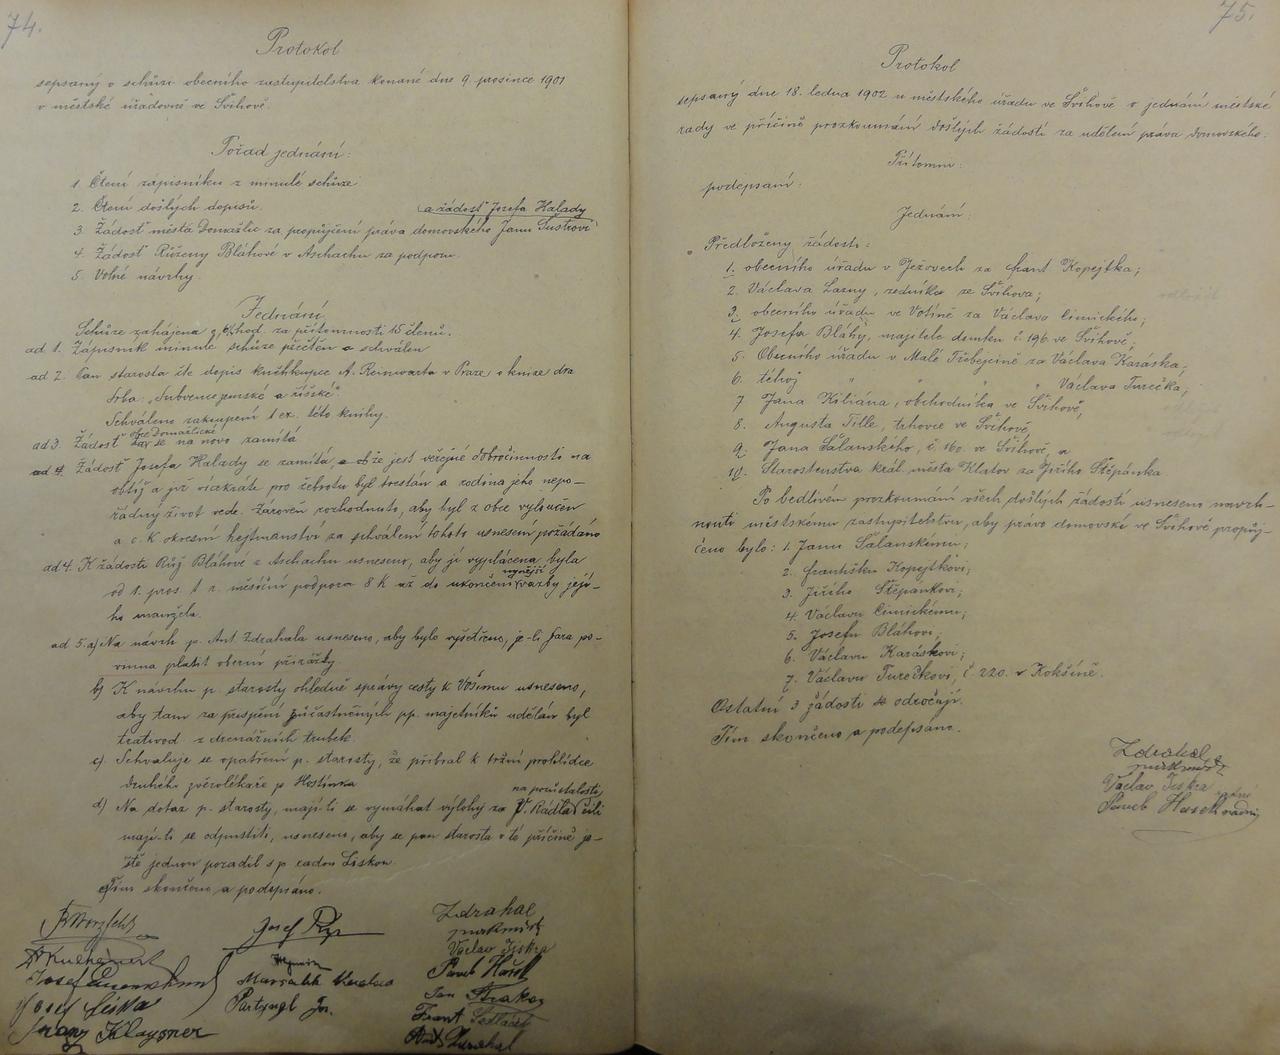 74.
Protokol
sepsaný o schůzi obecního zastupitelstva konané dne 9. prosince 1901
v městské úřadovně ve Švihově.
Pořad jednání:
1. Čtení zápisníku z minulé schůze
2. Čtení došlých dopisů.
a žádosť Josefa Halady
3. Žádosť města Domažlic za propůjčení práva domovského Janu Šustrovi
4. Žádosť Růženy Bláhové v Aschachu za podporu.
5. Volné návrhy.
Jednání
Schůze zahájena hod. za přítomnosti 15 členů.
ad 1. Zápisník minulé schůze přečten a schválen
ad 2. Pan starosta čte dopis knihkupce A. Reinwarta v Praze o knize dra
Srba: „Subvence zemské a říšské".
Schváleno zakoupení 1 ex. této knihy.
obce Domažlické
ad 3. Žádosť se na novo zamítá
ad 4. Žádosť Josefa Halady se zamítá, že jest veřejné dobročinnosti na
obtíž a již vícekráte pro žebrotu byl trestán a rodina jeho nepo-
řádný život vede. Zároveň rozhodnuto, aby byl z obce vyloučen
a c. k. okresní hejtmanství za schválení tohoto usnesení požádáno
ad 4. K žádosti Růž. Bláhové z Aschachu usneseno, aby jí vyplácena byla
nynější
od 1. pros. t. r. měsíční podpora 8 K až do ukončení vazby její-
ho manžela.
ad 5. a) Na návrh p. Ant. Zdrahala usneseno, aby bylo vyšetřeno, je-li fara po-
vinna platit obecní přirážky
b) K návrhu p. starosty ohledně správy cesty k Vošímu usneseno,
aby tam za přispění zúčastněných pp. majetníků udělán byl
tratvod z drenážních trubek.
c) Schvaluje se opatření p. starosty, že přibral k tržní prohlídce
druhého zvěrolékaře p Hostínka
na pozůstalosti,
d) Na dotaz p. starosty, mají-li se vymáhat výlohy za V. Rádla čili
mají-li se odpustiti, usneseno, aby se pan starosta v té příčině je-
ště jednou poradil s p. radou Liškou.
Tím skončeno a podepsáno.
Josef
Zdrahal
purkmistr
Václav Jiskra
Josef
Josef Liška
Franz Klaysner
Jan Straka
Frant Sedláček
Ant Zdrahal
75.
Protokol
sepsaný dne 18. ledna 1902 u městského úřadu ve Švihově o jednání městské
rady ve příčině prozkoumání došlých žádostí za udělení práva domovského:
Přítomni:
podepsaní:
Jednání:
Předloženy žádosti:
1. obecního úřadu v Ježovech za Frant Kopejtka;
2. Václava Lazny, zedníka ze Švihova;
3. obecního úřadu ve Votíně za Václava Cimického;
4. Josefa Bláhy, majitele domku č. 196 ve Švihově;
5. Obecního úřadu v Malé Třebejcině za Václava Karáska;
6. téhož " " " " Václava Turečka;
7 Jana Kiliána, obchodníka ve Švihově,
8. Augusta Tille, trhovce ve Švihově,
9. Jana Šalanského, č. 160. ve Švihově, a
10. Starostenstva král. města Klatov za Jiřího Štěpánka.
Po bedlivém prozkoumání všech došlých žádostí usneseno navrh-
nouti městskému zastupitelstvu, aby právo domovské ve Švihově propůj-
čeno bylo: 1. Janu Šalanskému;
2. Františku Kopejtkovi;
3. Jiřího Štěpánkovi;
4. Václavu Cimickému;
5. Josefu Bláhovi;
6. Václavu Karáskovi;
7. Václavu Turečkovi, č. 220. v Kokšíně.
Ostatní 3 žádosti se odročují.
Tím skončeno a podepsáno.
Zdrahal
purkmistr
Václav Jiskra radní
radní